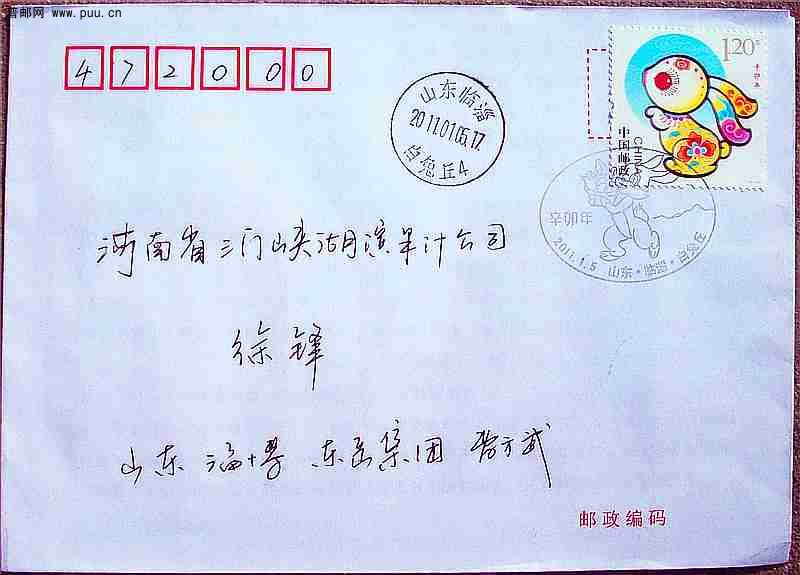 普邮网 www.puu.cn
472000
山东临淄
2011.01.05.17
白兔丘4
1.20元
辛卯年
中国邮政
CHINA
辛卯年
2011.1.5 山东·临淄·白兔丘
河南省三门峡湖滨果汁公司
徐锋
山东 淄博 东岳集团
邮政编码